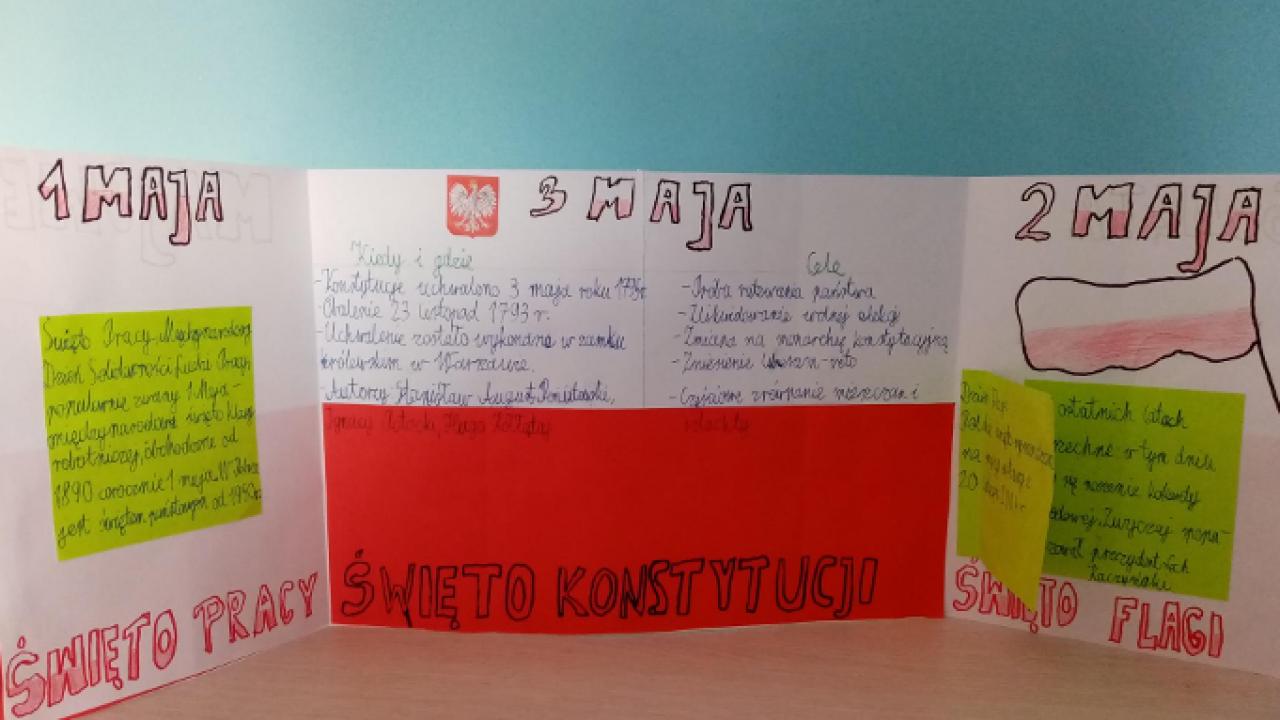 1 MAJA
Święto Pracy-Międzynarodowy
Dzień Solidarności Ludzi Pracy,
popularnie zwany 1 Maja -
międzynarodowe święto klasy
robotniczej, obchodzone od
1890 corocznie 1 maja. W Polsce
jest świętem państwowym od 1950r.
ŚWIĘTO PRACY
3 MAJA
Kiedy i gdzie
-Konstytucje uchwalono 3 maja roku
-Obalenie 23 listopad 1793 r.
-Uchwalenie zostało wykonane w zamku
królewskim w Warszawie.
-Autorzy Stanisław August Poniatowski,
Ignacy Potocki, Hugo Kołłątaj
Cele
-Próba ratowania państwa
-Zlikwidowanie wolnej elekcji
-Zmiana na monarchię konstytucyjną
-Zniesienie liberum-veto
-Częściowe zrównanie mieszczan i
szlachty
ŚWIĘTO KONSTYTUCJI
2 MAJA
Dzień Flagi
na mocy
20
ostatnich latach
zechne w tym dniu
się noszenie kokardy
dowej. Zwyczaj
prezydent Lech
Kaczyński
ŚWIĘTO FLAGI